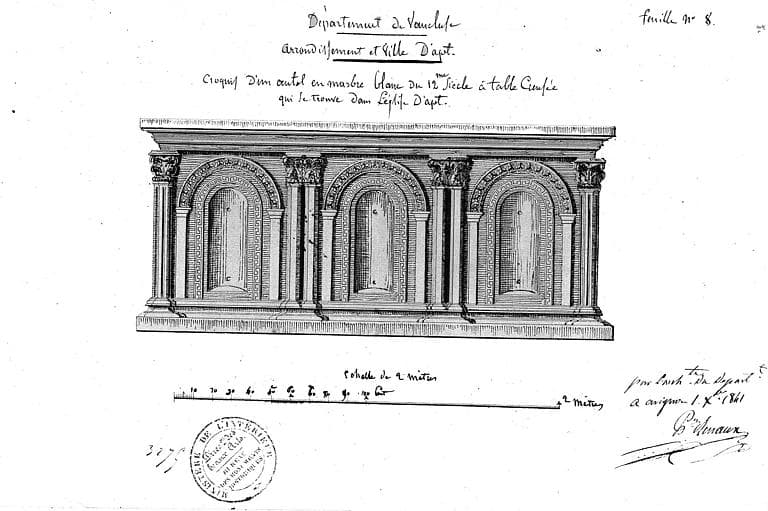 Département de Vaucluse
feuille N° 8.
arrondissement et Ville D'apt.
Croquis d'un autel en marbre blanc du 12me Siècle à table Creusée
qui se trouve dans L'église D'apt.
Echelle de 2 mètres
10 20 30 40 50 60 70 80 90 100 Cent
2 Mètres
pour l'archte du départt
a avignon 1. Xbre 1841
3275
MINISTÈRE DE L'INTÉRIEUR
BUREAU
DES MONUMENTS
HISTORIQUES